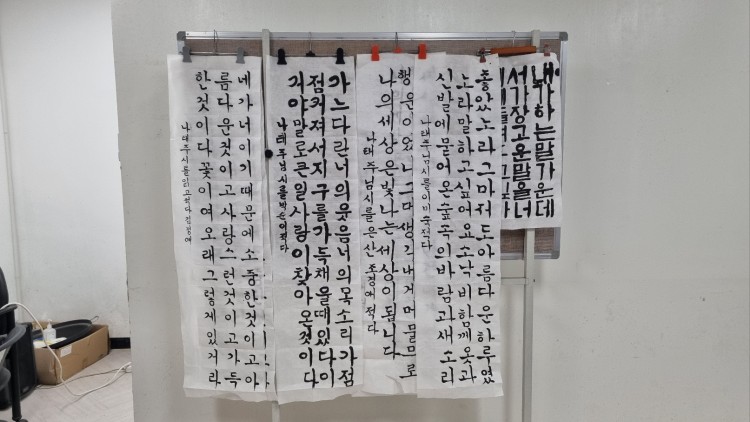 내가 하는 말 가운데
서 가장 고운 말을 너
좋았노라 그마저도 아름다운 하루였
노라 말하고 싶어요 소낙비 함께 옷과
신발에 묻어온 숲속의 바람과 새소리
나태주님 시를 이미숙 적다
행운이 머물므로
나의 세상은 빛나는 세상이 됩니다
나태주님 시를 은산 조경애 적다
가느다란 너의 웃음 너의 목소리 가점
점 커져서 지구를 가득 채울 때 있다 이
거야말로 큰일 사랑이 찾아온 것이다
나태주님 시를 박순이 적다
네가 너이기 때문에 소중한 것이고 아
름다운 것이고 사랑스런 것이고 가득
한 것이다 꽃이여 오래 그렇게 있거라
나태주 시를 읽고 쓰다